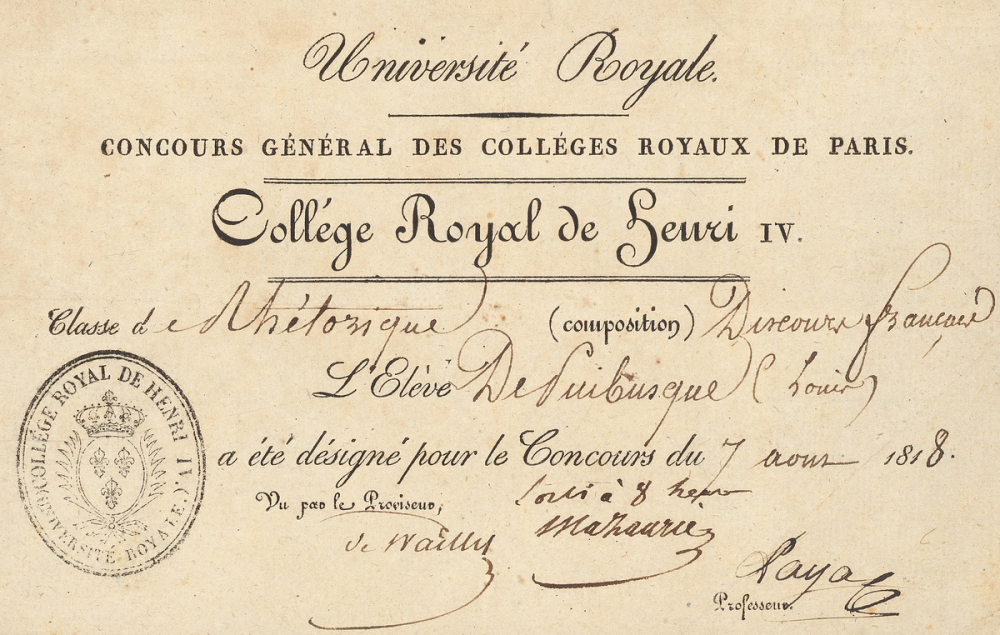 Université Royale.
CONCOURS GÉNÉRAL DES COLLÉGES ROYAUX DE PARIS.
Collége Royal de Henri IV.
Classe de Rhétorique (composition) Discours français
L'Elévé De Puibusque (Louis)
a été désigné pour le Concours du 7 aout 1818.
Vu par le Proviseur,
sorti à 8 heur
de Wailly
Professeur.
COLLÉGE ROYAL DE HENRI IV.
UNIVERSITÉ ROYALE.